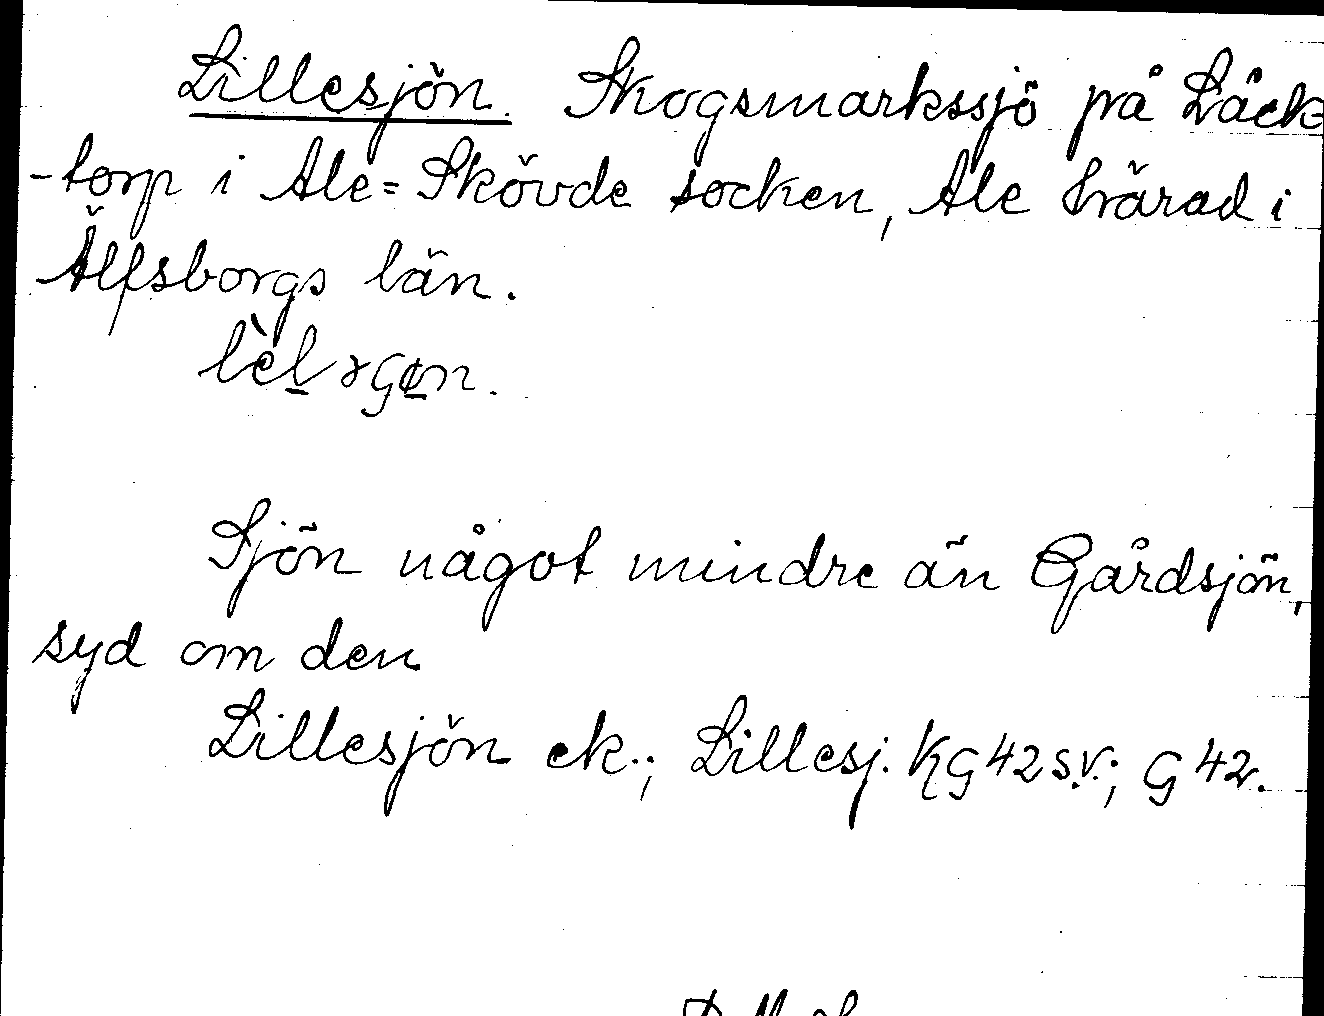 Lillesjön. Skogsmarkssjö på Läck
-torp i Ale=Skövde socken, Ale härad i
Älfsborgs län.
Sjön något mindre än Gårdsjön,
syd om den
Lillesjön ek.; Lillesj. KG42s.v.; G42.